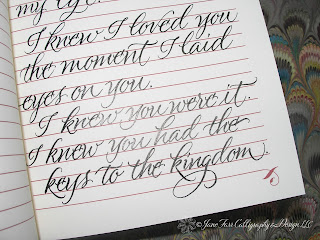 my eye.
I knew I loved you
the moment I laid
eyes on you.
I knew you were it.
I knew you had the
keys to the kingdom.
© Jane Farr Calligraphy & Design LLC